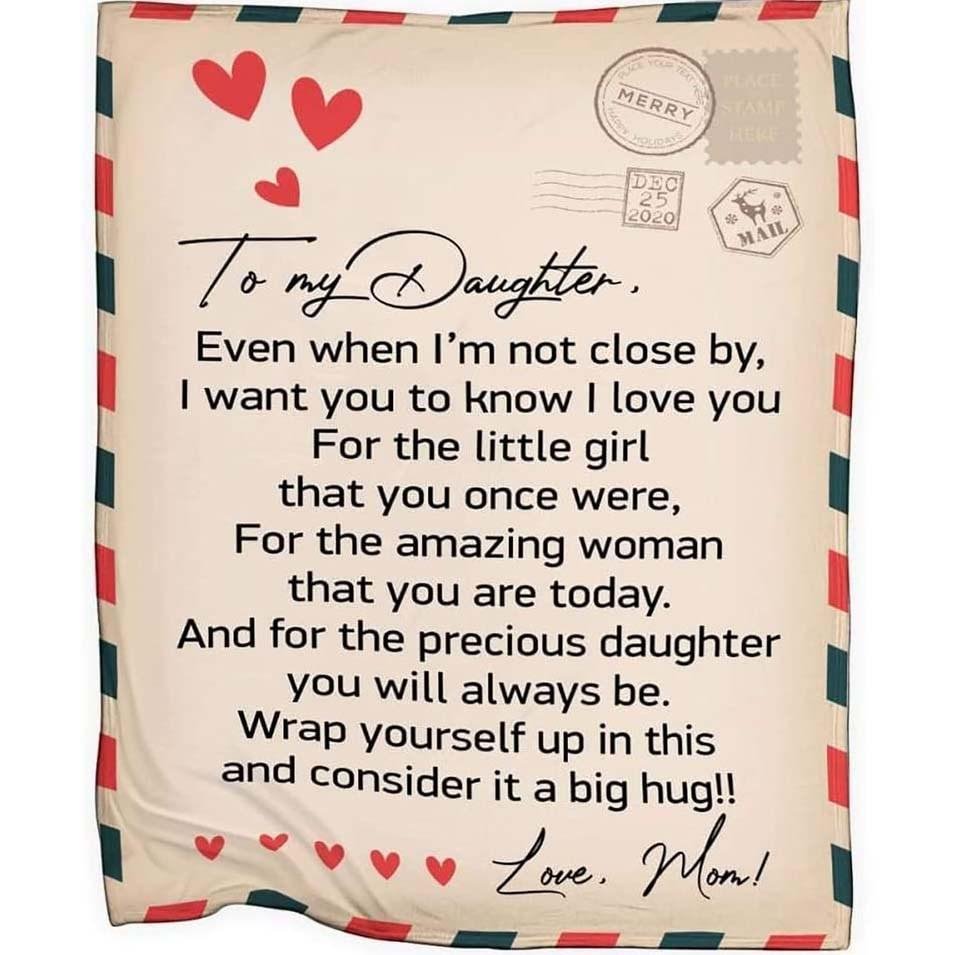 PLACE YOUR TEXT HERE
MERRY
HAPPY HOLIDAYS
PLACE
STAMP
HERE
DEC
25
2020
MAIL
To my Daughter,
Even when I'm not close by,
I want you to know I love you
For the little girl
that you once were,
For the amazing woman
that you are today.
And for the precious daughter
you will always be.
Wrap yourself up in this
and consider it a big hug!!
Love, Mom!